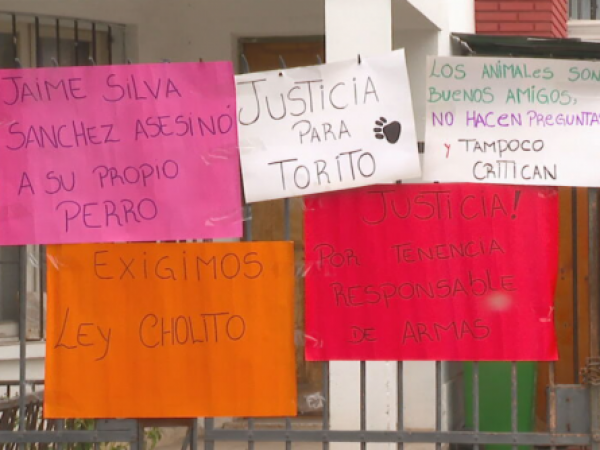 JAIME SILVA
SANCHEZ ASESINÓ
A SU PROPIO
PERRO
JUSTICIA
PARA
TORITO
LOS ANIMALES SON
BUENOS AMIGOS,
NO HACEN PREGUNTAS
Y TAMPOCO
CRITICAN
EXIGIMOS
LEY CHOLITO
JUSTICIA!
POR TENENCIA
RESPONSABLE
DE ARMAS